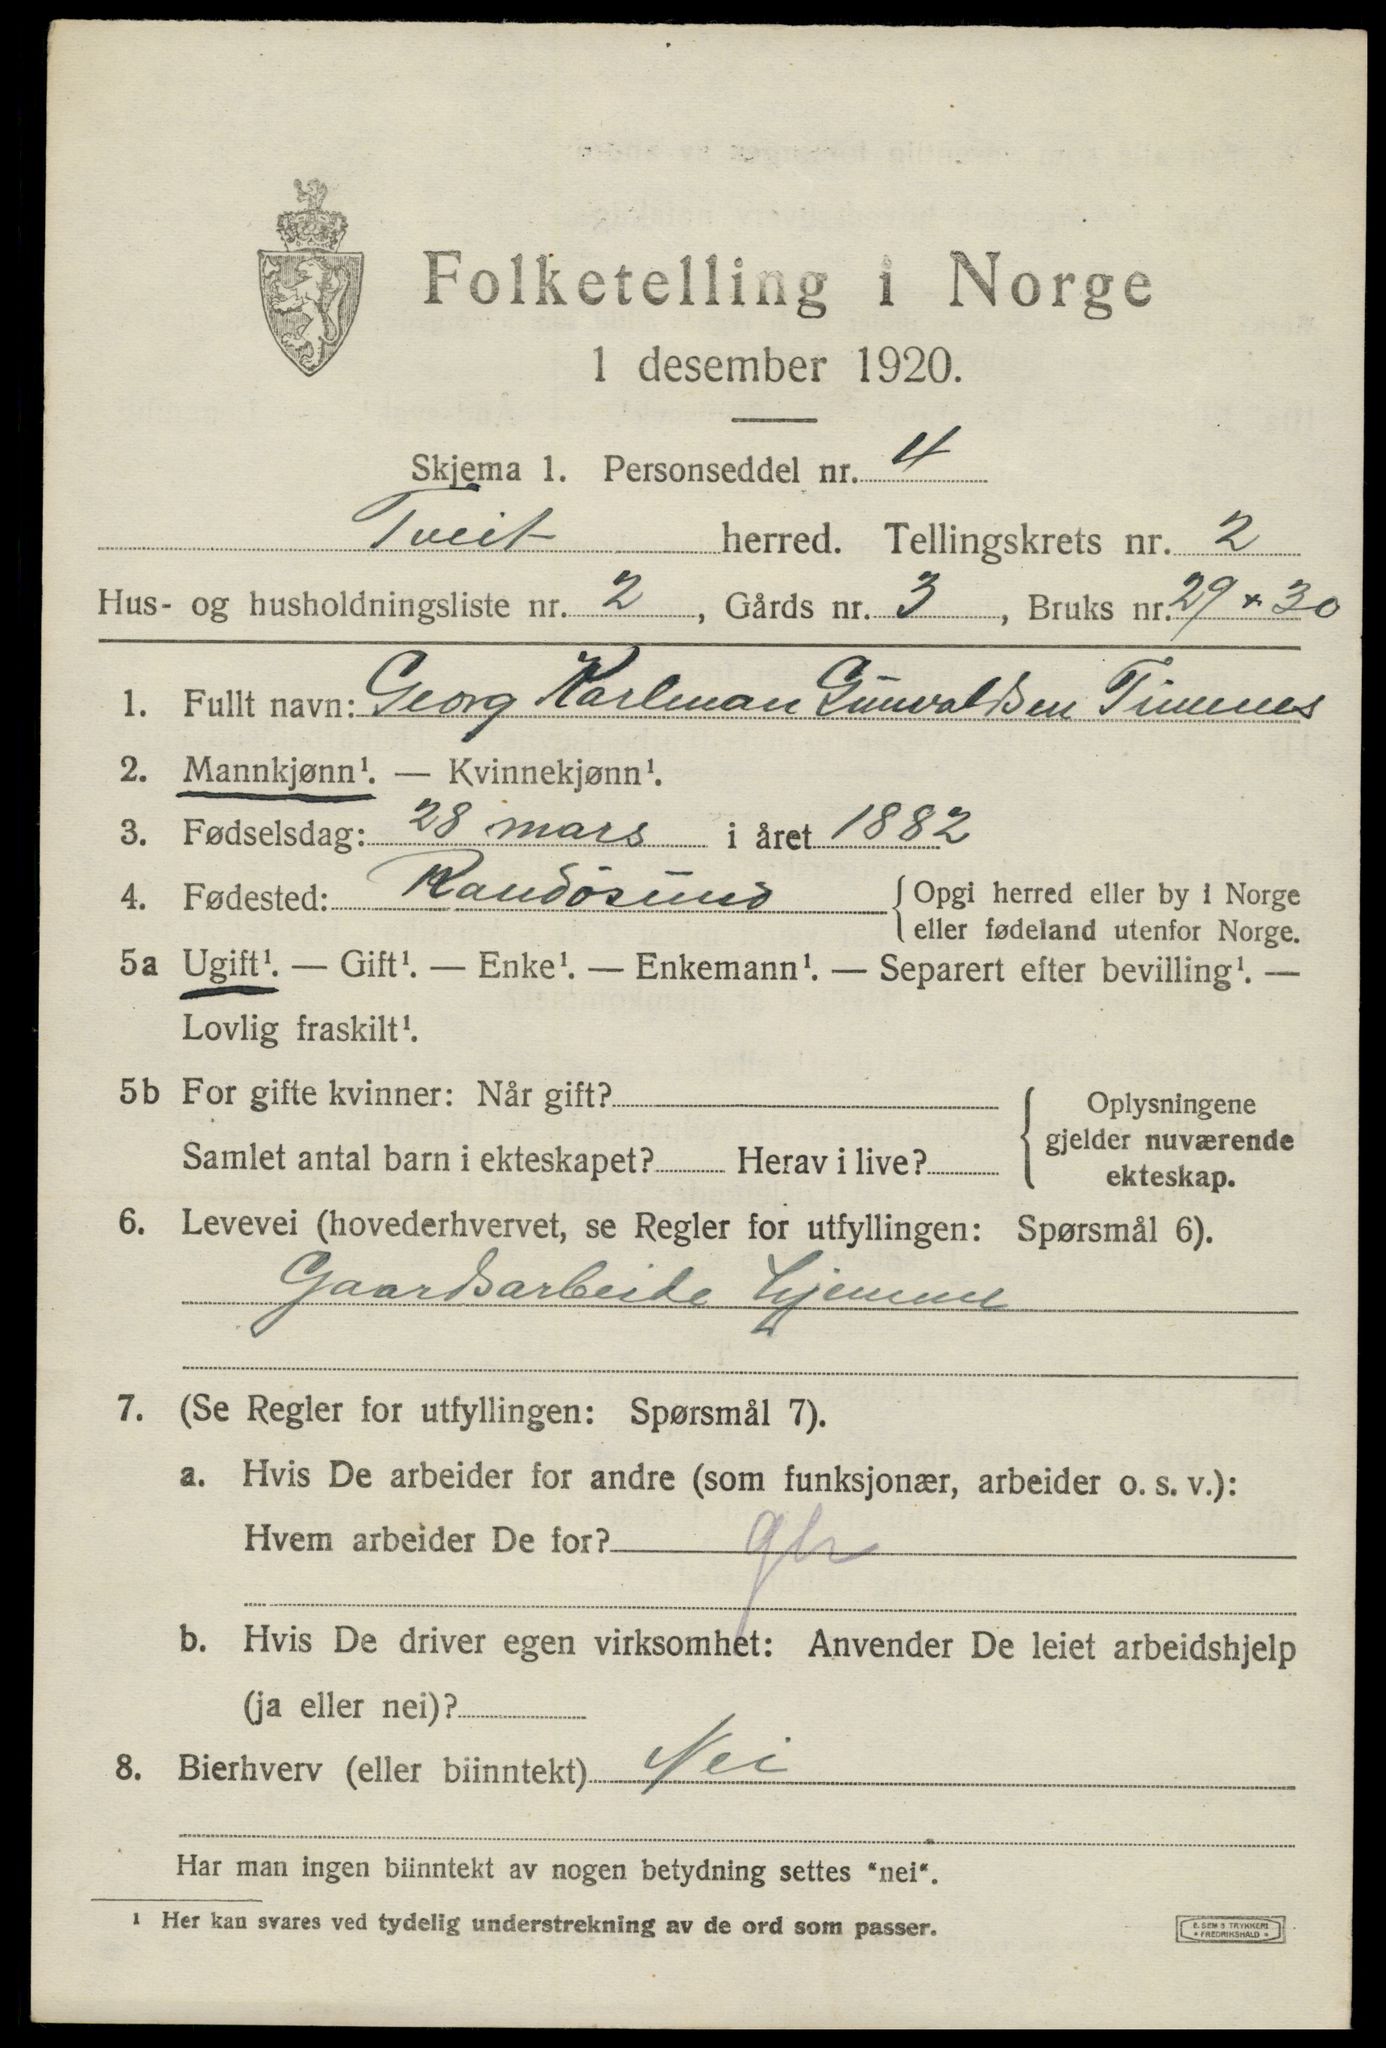 Folketelling i Norge
1 desember 1920.
Skjema 1. Personseddel nr. 4
Tveit herred. Tellingskrets nr. 2
Hus- og husholdningsliste nr. 2, Gårds nr. 3, Bruks nr. 29 + 30
1. Fullt navn: Georg Karlman Gunvaldsen Timenes
2. Mannkjønn¹. — Kvinnekjønn¹.
3. Fødselsdag: 28 mars i året 1882
4. Fødested: Randøsund { Opgi herred eller by i Norge
eller fødeland utenfor Norge.
5a Ugift¹. — Gift¹. — Enke¹. — Enkemann¹. — Separert efter bevilling¹. —
Lovlig fraskilt¹.
5b For gifte kvinner: Når gift?
Samlet antal barn i ekteskapet? Herav i live?
{ Oplysningene
gjelder nuværende
ekteskap.
6. Levevei (hovederhvervet, se Regler for utfyllingen: Spørsmål 6).
Gaardsarbeide hjemme
7. (Se Regler for utfyllingen: Spørsmål 7).
a. Hvis De arbeider for andre (som funksjonær, arbeider o. s. v.):
Hvem arbeider De for?
b. Hvis De driver egen virksomhet: Anvender De leiet arbeidshjelp
(ja eller nei)?
8. Bierhverv (eller biinntekt) Nei
Har man ingen biinntekt av nogen betydning settes "nei".
¹ Her kan svares ved tydelig understrekning av de ord som passer.
E. SEM S TRYKKERI
* FREDRIKSHALD *